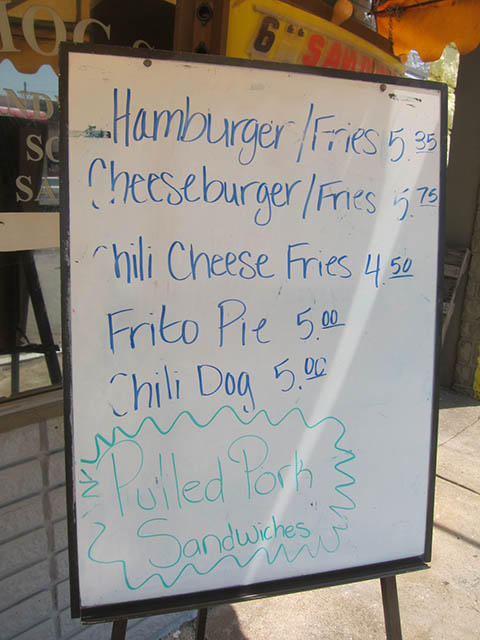 6"
Hamburger/Fries 5.35
Cheeseburger/Fries 5.75
Chili Cheese Fries 4.50
Frito Pie 5.00
Chili Dog 5.00
Pulled Pork
Sandwiches